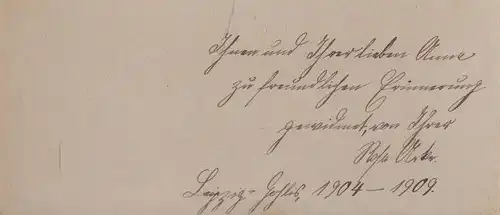 Ihnen und Ihrer lieben Anna
zu freundlichen Erinnerung
gewidmet, von Ihrer
Rosa
Leipzig-Gohlis, 1904 – 1909.